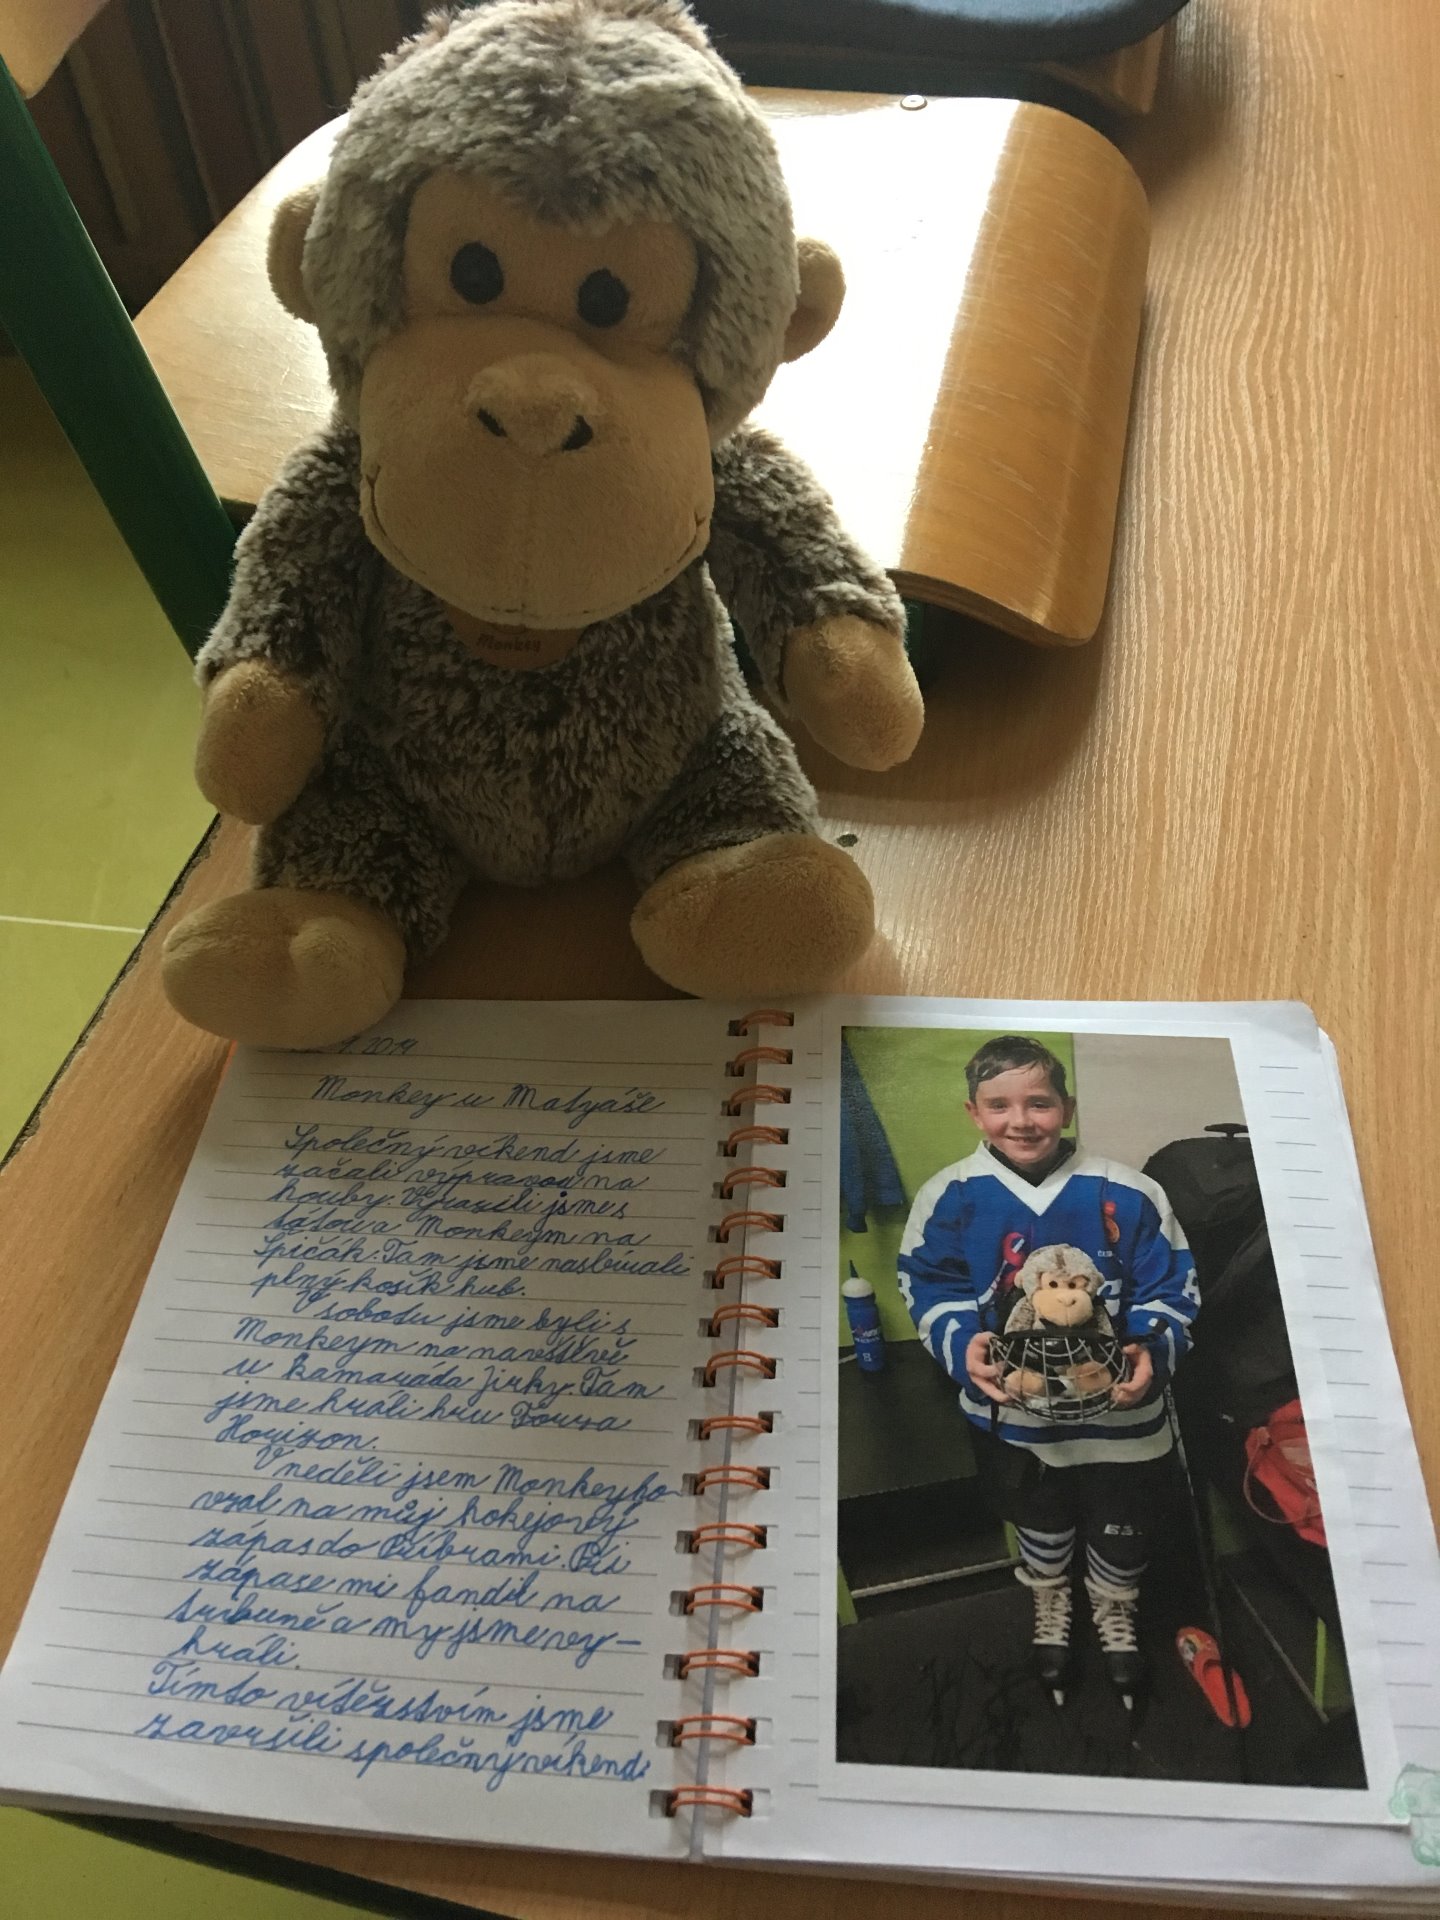 Monkey
9. 2019
Monkey u Matyáše
Společný víkend jsme
začali výpravou na
houby. Vyrazili jsme s
tátou a Monkeym na
Špičák. Tam jsme nasbírali
plný košík hub.
V sobotu jsme byli s
Monkeym na návštěvě
u kamaráda Jirky. Tam
jsme hráli hru Forza
Horizon.
V neděli jsem Monkeyho
vzal na můj hokejový
zápas do Příbrami. Při
zápase mi fandil na
tribuně a my jsme vy-
hráli.
Tímto vítězstvím jsme
završili společný víkend.